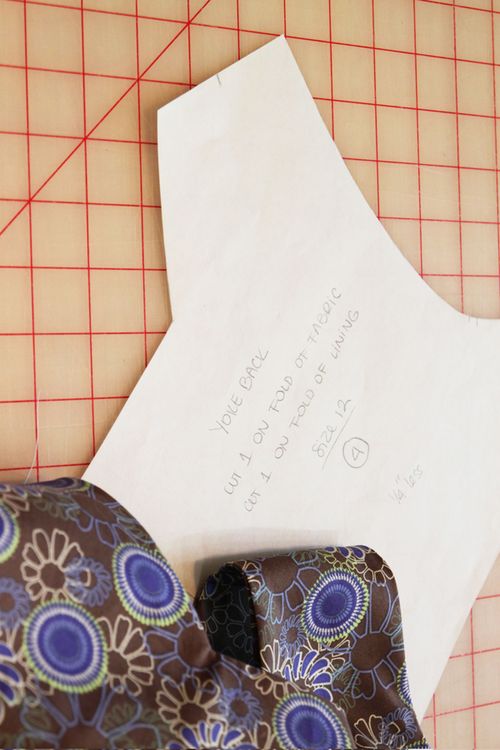 YOKE BACK
CUT 1 ON FOLD OF FABRIC
CUT 1 ON FOLD OF LINING
Size 12
4
1/4" less